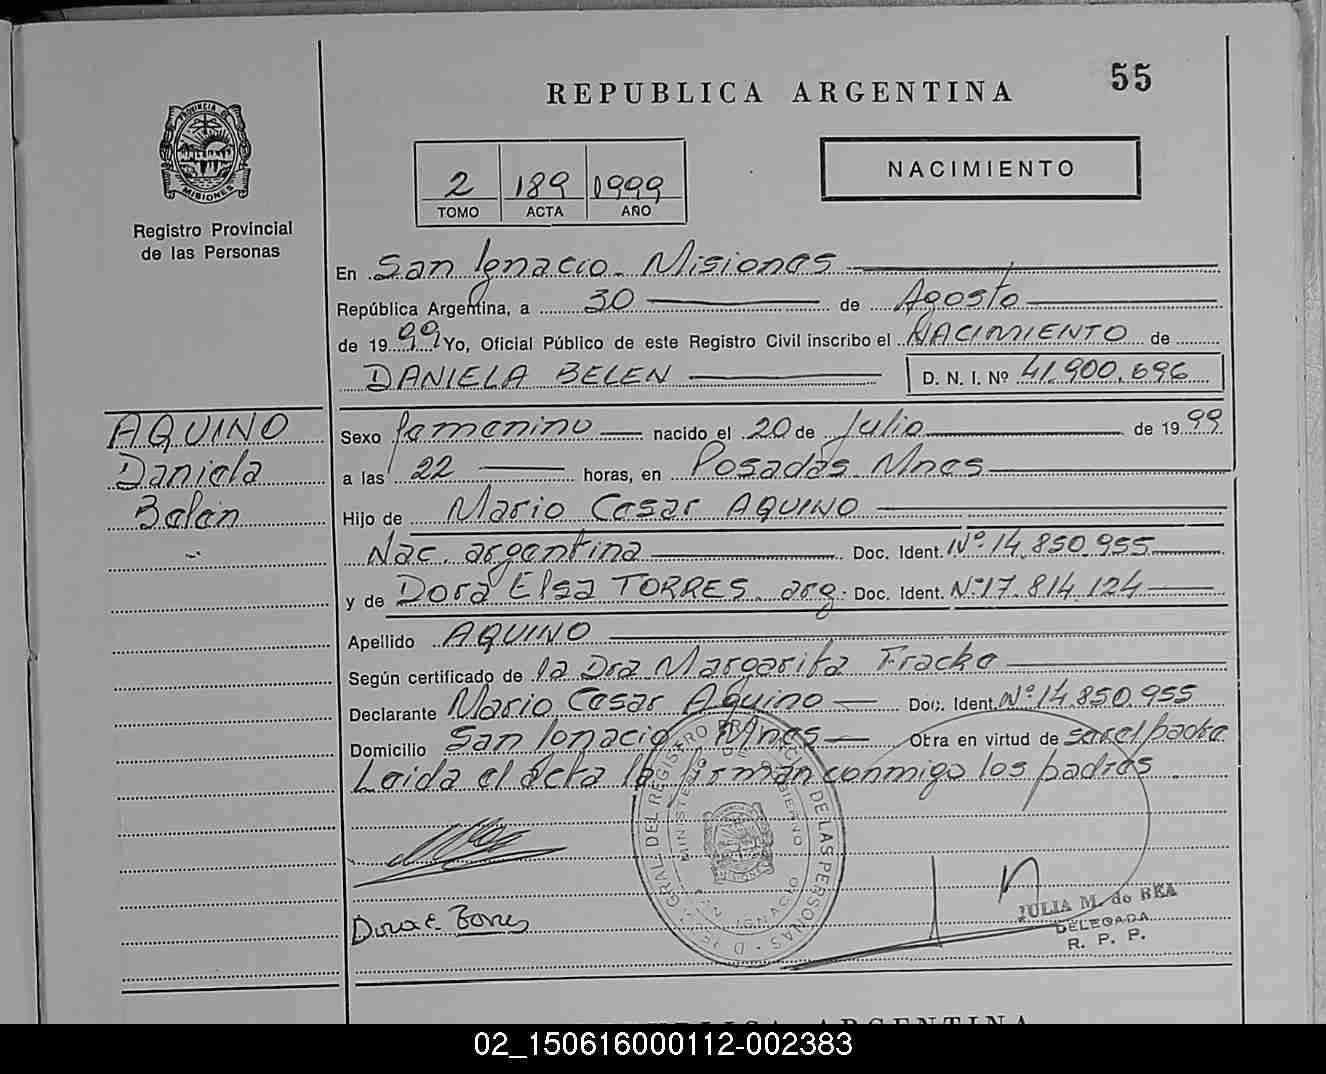 55
REPUBLICA ARGENTINA
PROVINCIA DE
MISIONES
Registro Provincial
de las Personas
2 189 1999
TOMO ACTA AÑO
NACIMIENTO
En San Ignacio. Misiones
República Argentina, a 30 de Agosto
de 1999 Yo, Oficial Público de este Registro Civil inscribo el NACIMIENTO de
DANIELA BELEN D. N. I. Nº 41.900.696
AQUINO
Daniela
Belén
Sexo femenino nacido el 20 de Julio de 1999
a las 22 horas, en Posadas Mnes
Hijo de Mario Cesar AQUINO
Nac. argentina Doc. Ident. Nº 14.850.955
y de Dora Elsa TORRES. arg. Doc. Ident. Nº 17.814.124
Apellido AQUINO
Según certificado de la Dra Margarita Fracke
Declarante Mario Cesar Aquino Doc. Ident. Nº 14.850.955
Domicilio San Ignacio Mnes Obra en virtud de ser el padre
Leida el acta la firman conmigo los padres.
GRAL DEL REGISTRO PROVINCIAL DE LAS PERSONAS
MINISTERIO DE GOBIERNO
SAN IGNACIO
Dora E. Torres
JULIA M. de REA
DELEGADA
R. P. P.
REPUBLICA ARGENTINA
02_150616000112-002383